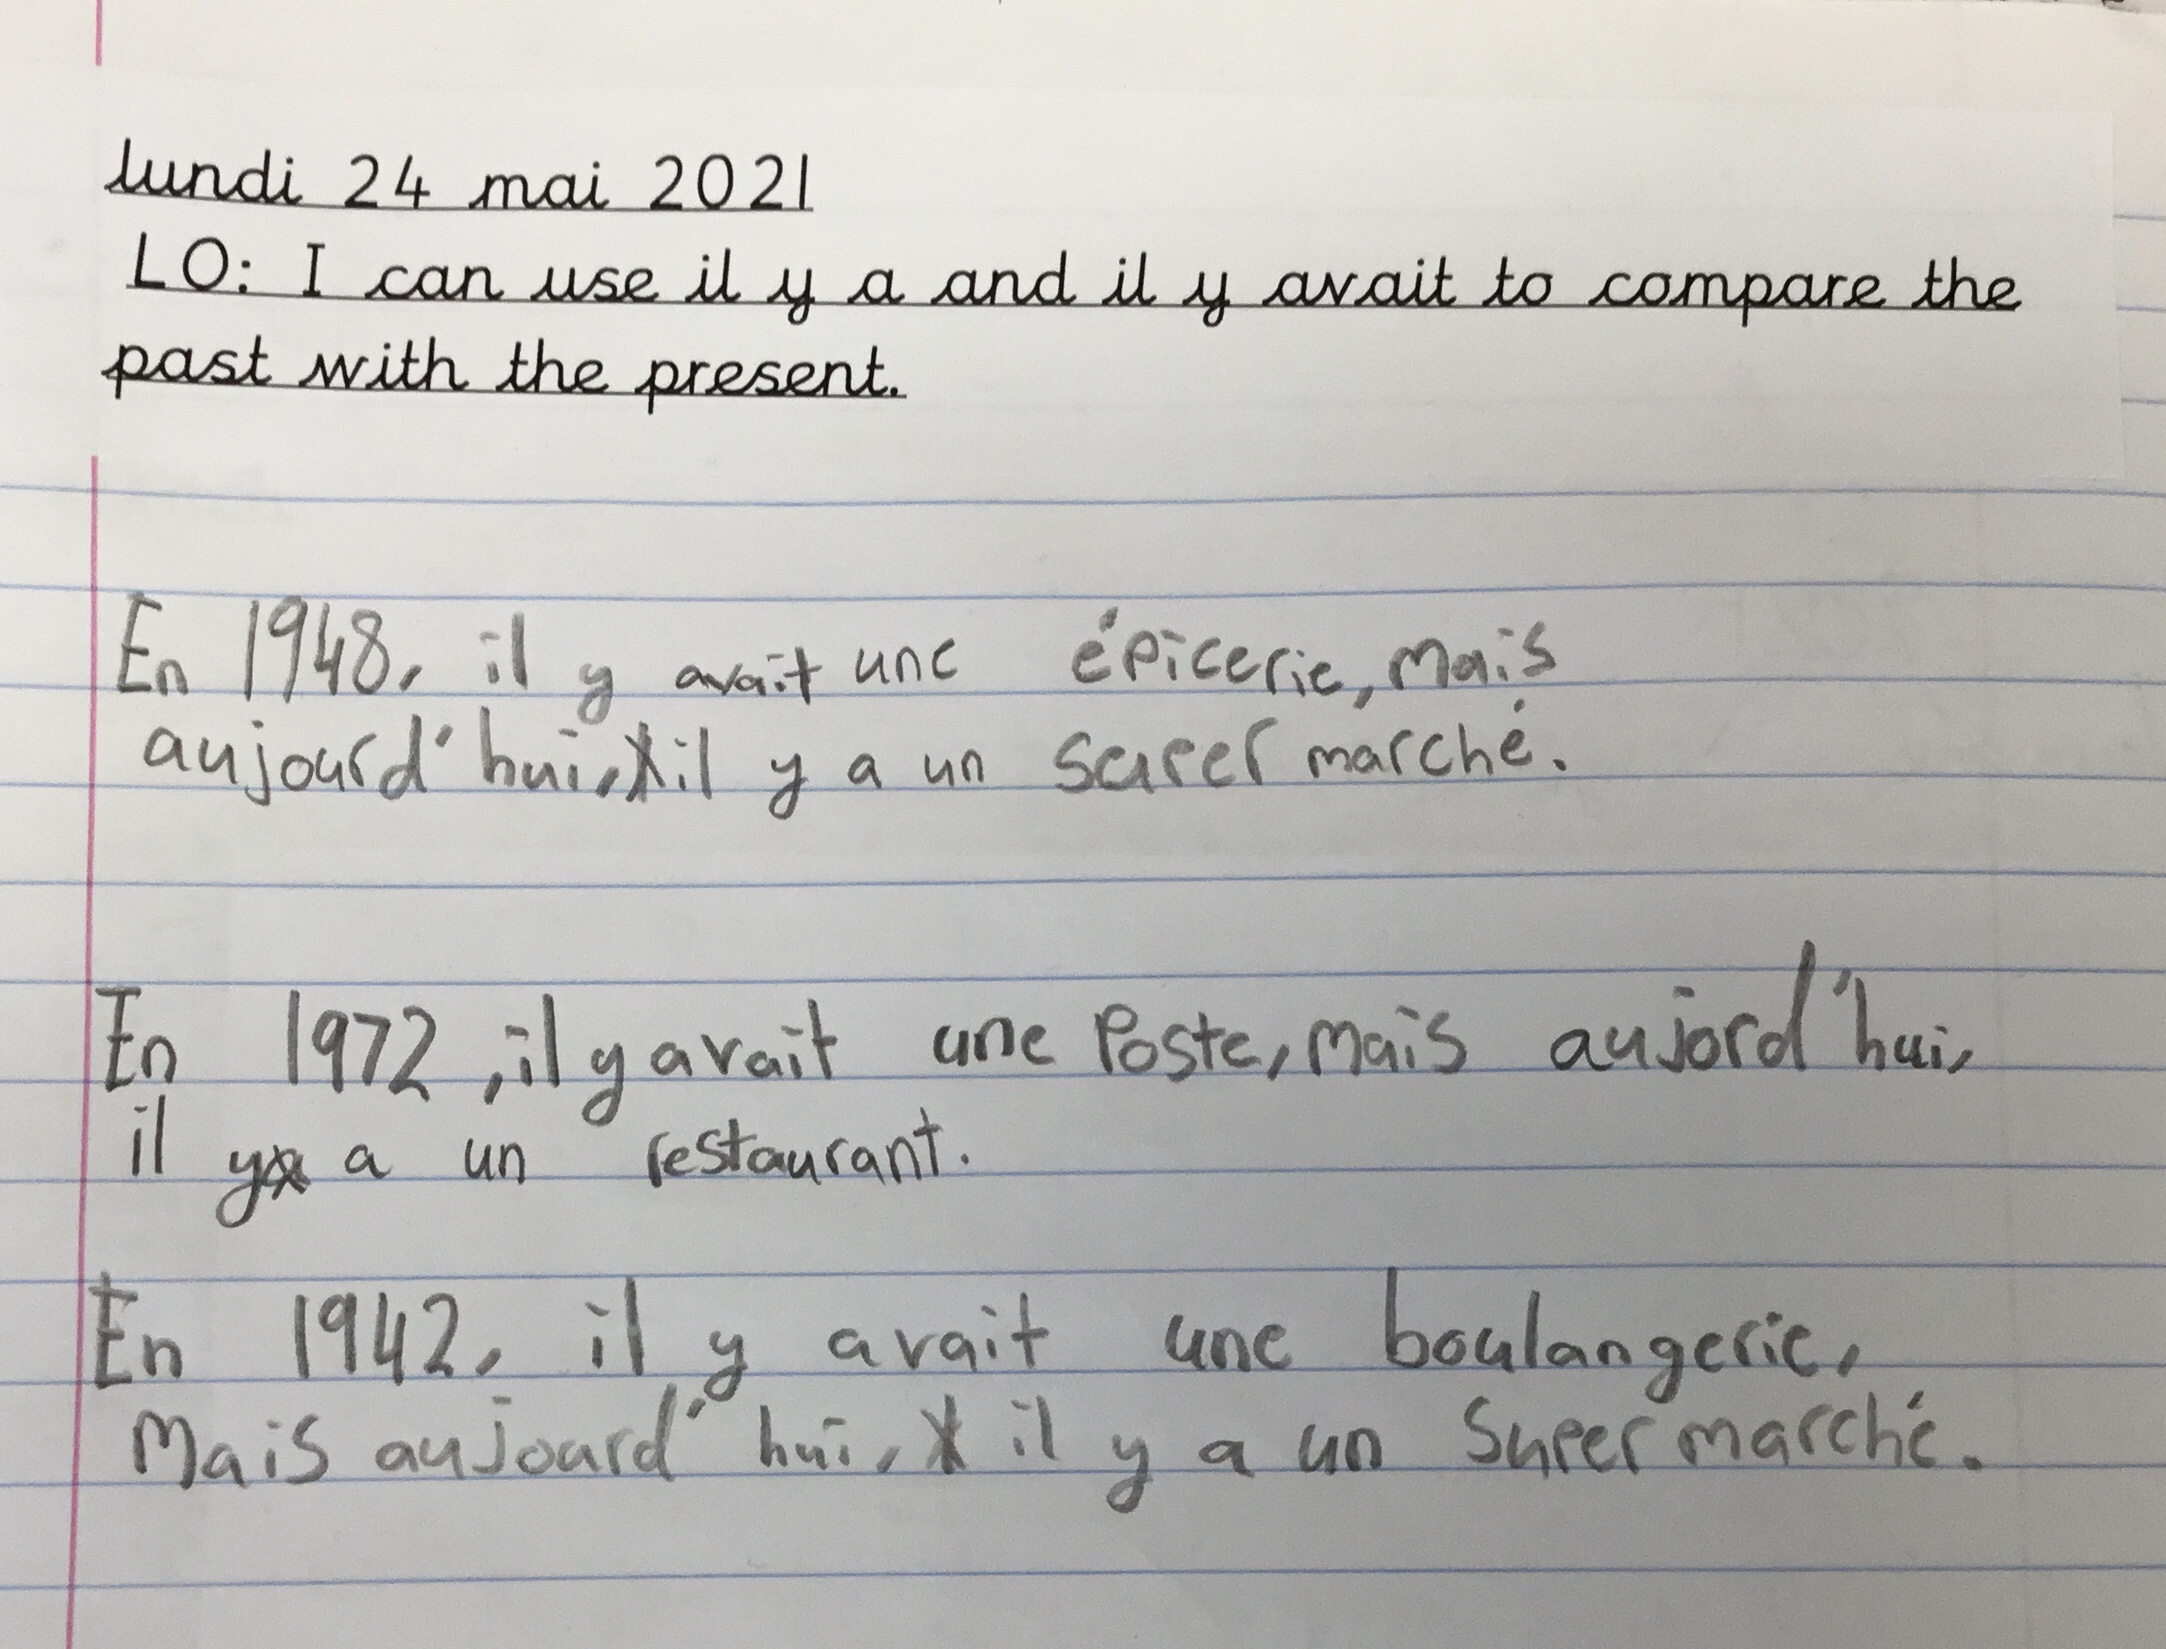 lundi 24 mai 2021
LO: I can use il y a and il y avait to compare the
past with the present.
En 1948, il y avait une épicerie, mais
aujourd'hui, il y a un super marché.
En 1972, il y avait une Poste, mais aujord'hui,
il y a un restaurant.
En 1942, il y avait une boulangerie,
Mais aujourd'hui, il y a un Super marché.